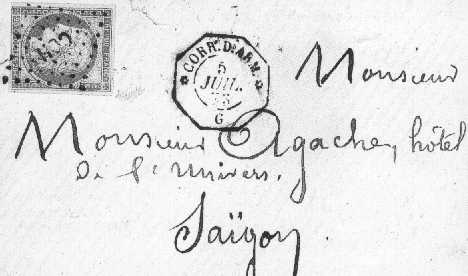 CORR. D. ARM.
5
JUIL.
G
Monsieur
Monsieur Agache, hôtel
de l'univers.
Saïgon